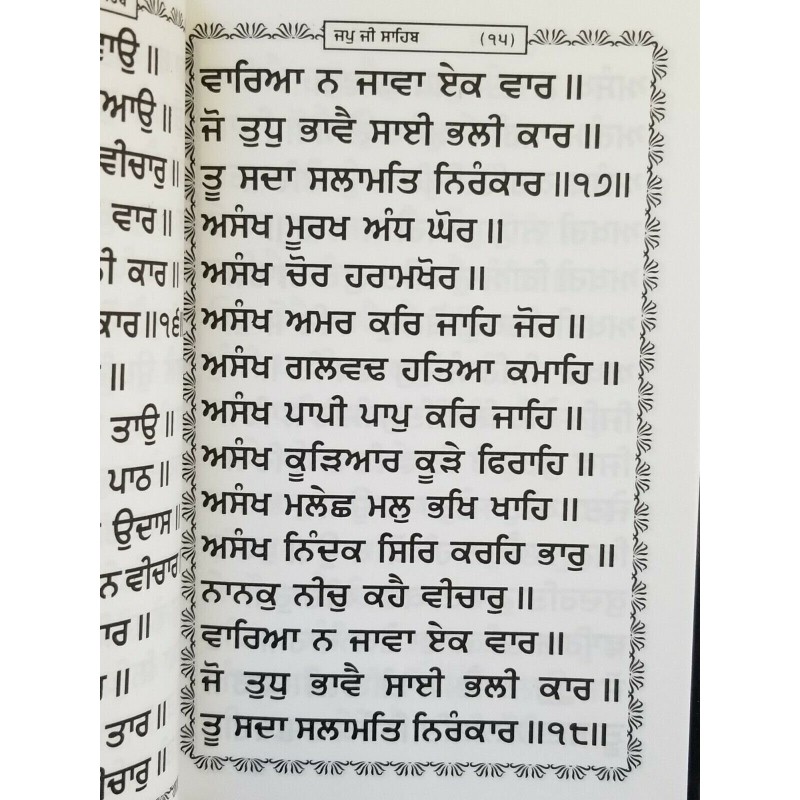 ਤਾਉ ॥
ਪਾਠ ॥
ਉਦਾਸ ॥
ਵੀਚਾਰ
ਵੀਚਾਰੁ ॥
ਵਾਰ ॥
ਕਾਰ ॥
ਕਾਰ ॥੧੬
ਤਾਰ ॥
ਜਪੁ ਜੀ ਸਾਹਿਬ (੧੫)
ਵਾਰਿਆ ਨ ਜਾਵਾ ਏਕ ਵਾਰ ॥
ਜੋ ਤੁਧੁ ਭਾਵੈ ਸਾਈ ਭਲੀ ਕਾਰ ॥
ਤੂ ਸਦਾ ਸਲਾਮਤਿ ਨਿਰੰਕਾਰ ॥੧੭॥
ਅਸੰਖ ਮੂਰਖ ਅੰਧ ਘੋਰ ॥
ਅਸੰਖ ਚੋਰ ਹਰਾਮਖੋਰ ॥
ਅਸੰਖ ਅਮਰ ਕਰਿ ਜਾਹਿ ਜੋਰ ॥
ਅਸੰਖ ਗਲਵਢ ਹਤਿਆ ਕਮਾਹਿ ॥
ਅਸੰਖ ਪਾਪੀ ਪਾਪੁ ਕਰਿ ਜਾਹਿ ॥
ਅਸੰਖ ਕੂੜਿਆਰ ਕੂੜੇ ਫਿਰਾਹਿ ॥
ਅਸੰਖ ਮਲੇਛ ਮਲੁ ਭਖਿ ਖਾਹਿ ॥
ਅਸੰਖ ਨਿੰਦਕ ਸਿਰਿ ਕਰਹਿ ਭਾਰੁ ॥
ਨਾਨਕੁ ਨੀਚੁ ਕਹੈ ਵੀਚਾਰੁ ॥
ਵਾਰਿਆ ਨ ਜਾਵਾ ਏਕ ਵਾਰ ॥
ਜੋ ਤੁਧੁ ਭਾਵੈ ਸਾਈ ਭਲੀ ਕਾਰ ॥
ਤੂ ਸਦਾ ਸਲਾਮਤਿ ਨਿਰੰਕਾਰ ॥੧੮॥